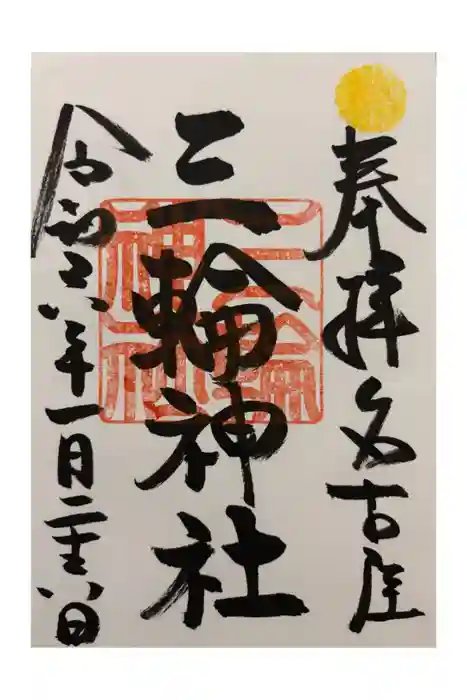 奉拝 名古屋
三輪神社
令和六年一月二十八日
三輪
神社